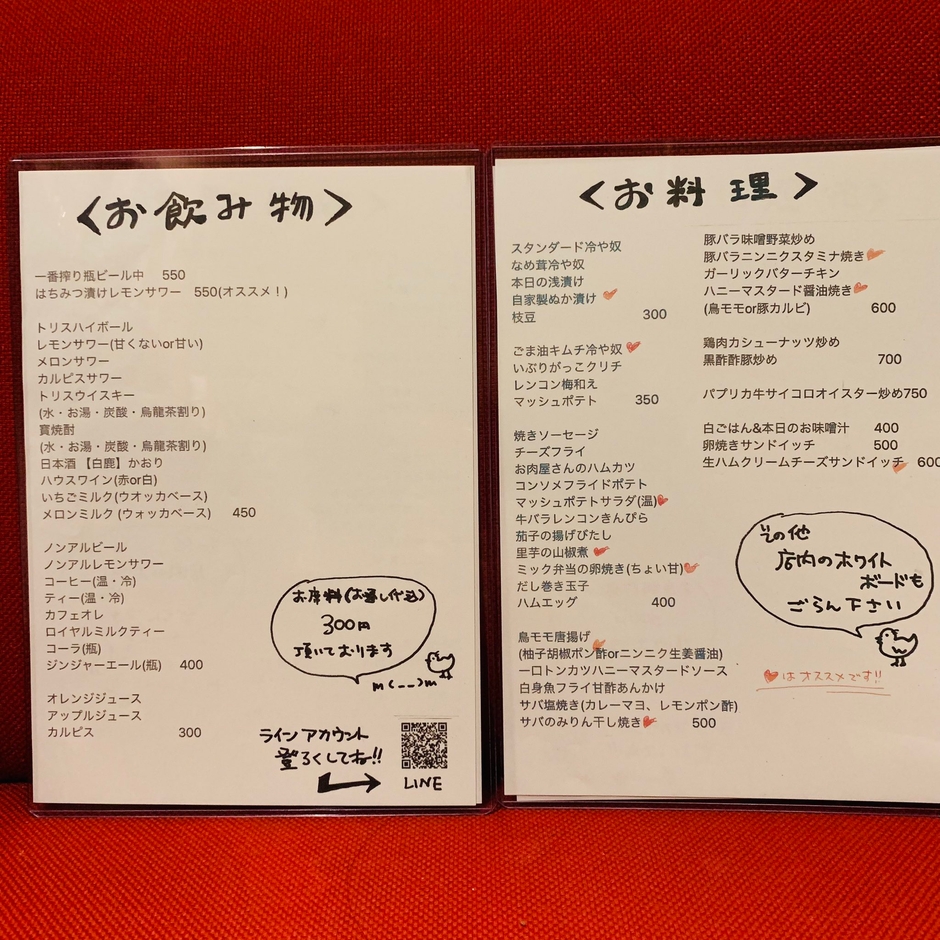 <お飲み物>
一番搾り瓶ビール中 550
はちみつ漬けレモンサワー 550(オススメ!)
トリスハイボール
レモンサワー(甘くないor甘い)
メロンサワー
カルピスサワー
トリスウイスキー
(水・お湯・炭酸・烏龍茶割り)
寶焼酎
(水・お湯・炭酸・烏龍茶割り)
日本酒【白鹿】かおり
ハウスワイン(赤or白)
いちごミルク(ウオッカベース)
メロンミルク(ウォッカベース) 450
ノンアルビール
ノンアルレモンサワー
コーヒー(温・冷)
ティー(温・冷)
カフェオレ
ロイヤルミルクティー
コーラ(瓶)
ジンジャーエール(瓶) 400
オレンジジュース
アップルジュース
カルピス 300
お席料(お通し代込)
300円
頂いております
m(__)m
ラインアカウント
登ろくしてね!!
LINE
<お料理>
スタンダード冷や奴
なめ茸冷や奴
本日の浅漬け
自家製ぬか漬け
枝豆 300
ごま油キムチ冷や奴
いぶりがっこクリチ
レンコン梅和え
マッシュポテト 350
焼きソーセージ
チーズフライ
お肉屋さんのハムカツ
コンソメフライドポテト
マッシュポテトサラダ(温)
牛バラレンコンきんぴら
茄子の揚げびたし
里芋の山椒煮
ミック弁当の卵焼き(ちょい甘)
だし巻き玉子
ハムエッグ 400
鳥モモ唐揚げ
(柚子胡椒ポン酢orニンニク生姜醤油)
一口トンカツハニーマスタードソース
白身魚フライ甘酢あんかけ
サバ塩焼き(カレーマヨ、レモンポン酢)
サバのみりん干し焼き 500
豚バラ味噌野菜炒め
豚バラニンニクスタミナ焼き
ガーリックバターチキン
ハニーマスタード醤油焼き
(鳥モモor豚カルビ) 600
鶏肉カシューナッツ炒め
黒酢酢豚炒め 700
パプリカ牛サイコロオイスター炒め750
白ごはん&本日のお味噌汁 400
卵焼きサンドイッチ 500
生ハムクリームチーズサンドイッチ 600
その他
店内のホワイト
ボードも
ごらん下さい
はオススメです!!